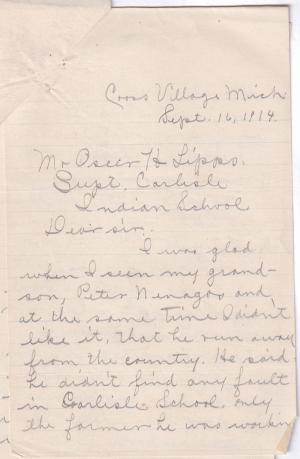 Cross Village Mich
Sept. 16, 1914.
Mr Oscer H Lipps.
Supt. Carlisle
Indian School
Dear sir.
I was glad
when I seen my grand-
son, Peter Nenagos and
at the same time I didn't
like it, that he run away
from the country. He said
he didn't find any fault
in Coarlisle School. only
the farmer he was workin